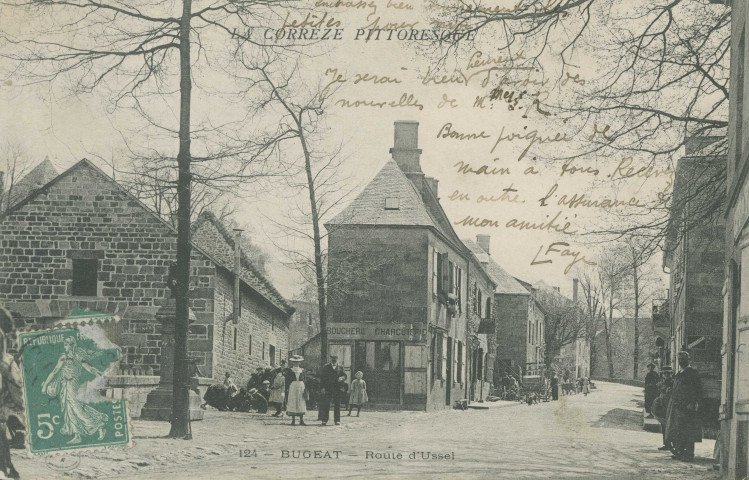 embrassez bien
petites
LA CORRÈZE PITTORESQUE
Je serai bien heureuse d'avoir des
nouvelles de Mr
Bonne poignée de
main à tous. Recevez
en outre l'assurance de
mon amitié
L Faye
BOUCHERIE CHARCUTERIE
République
5c POSTES
124 - BUGEAT - Route d'Ussel